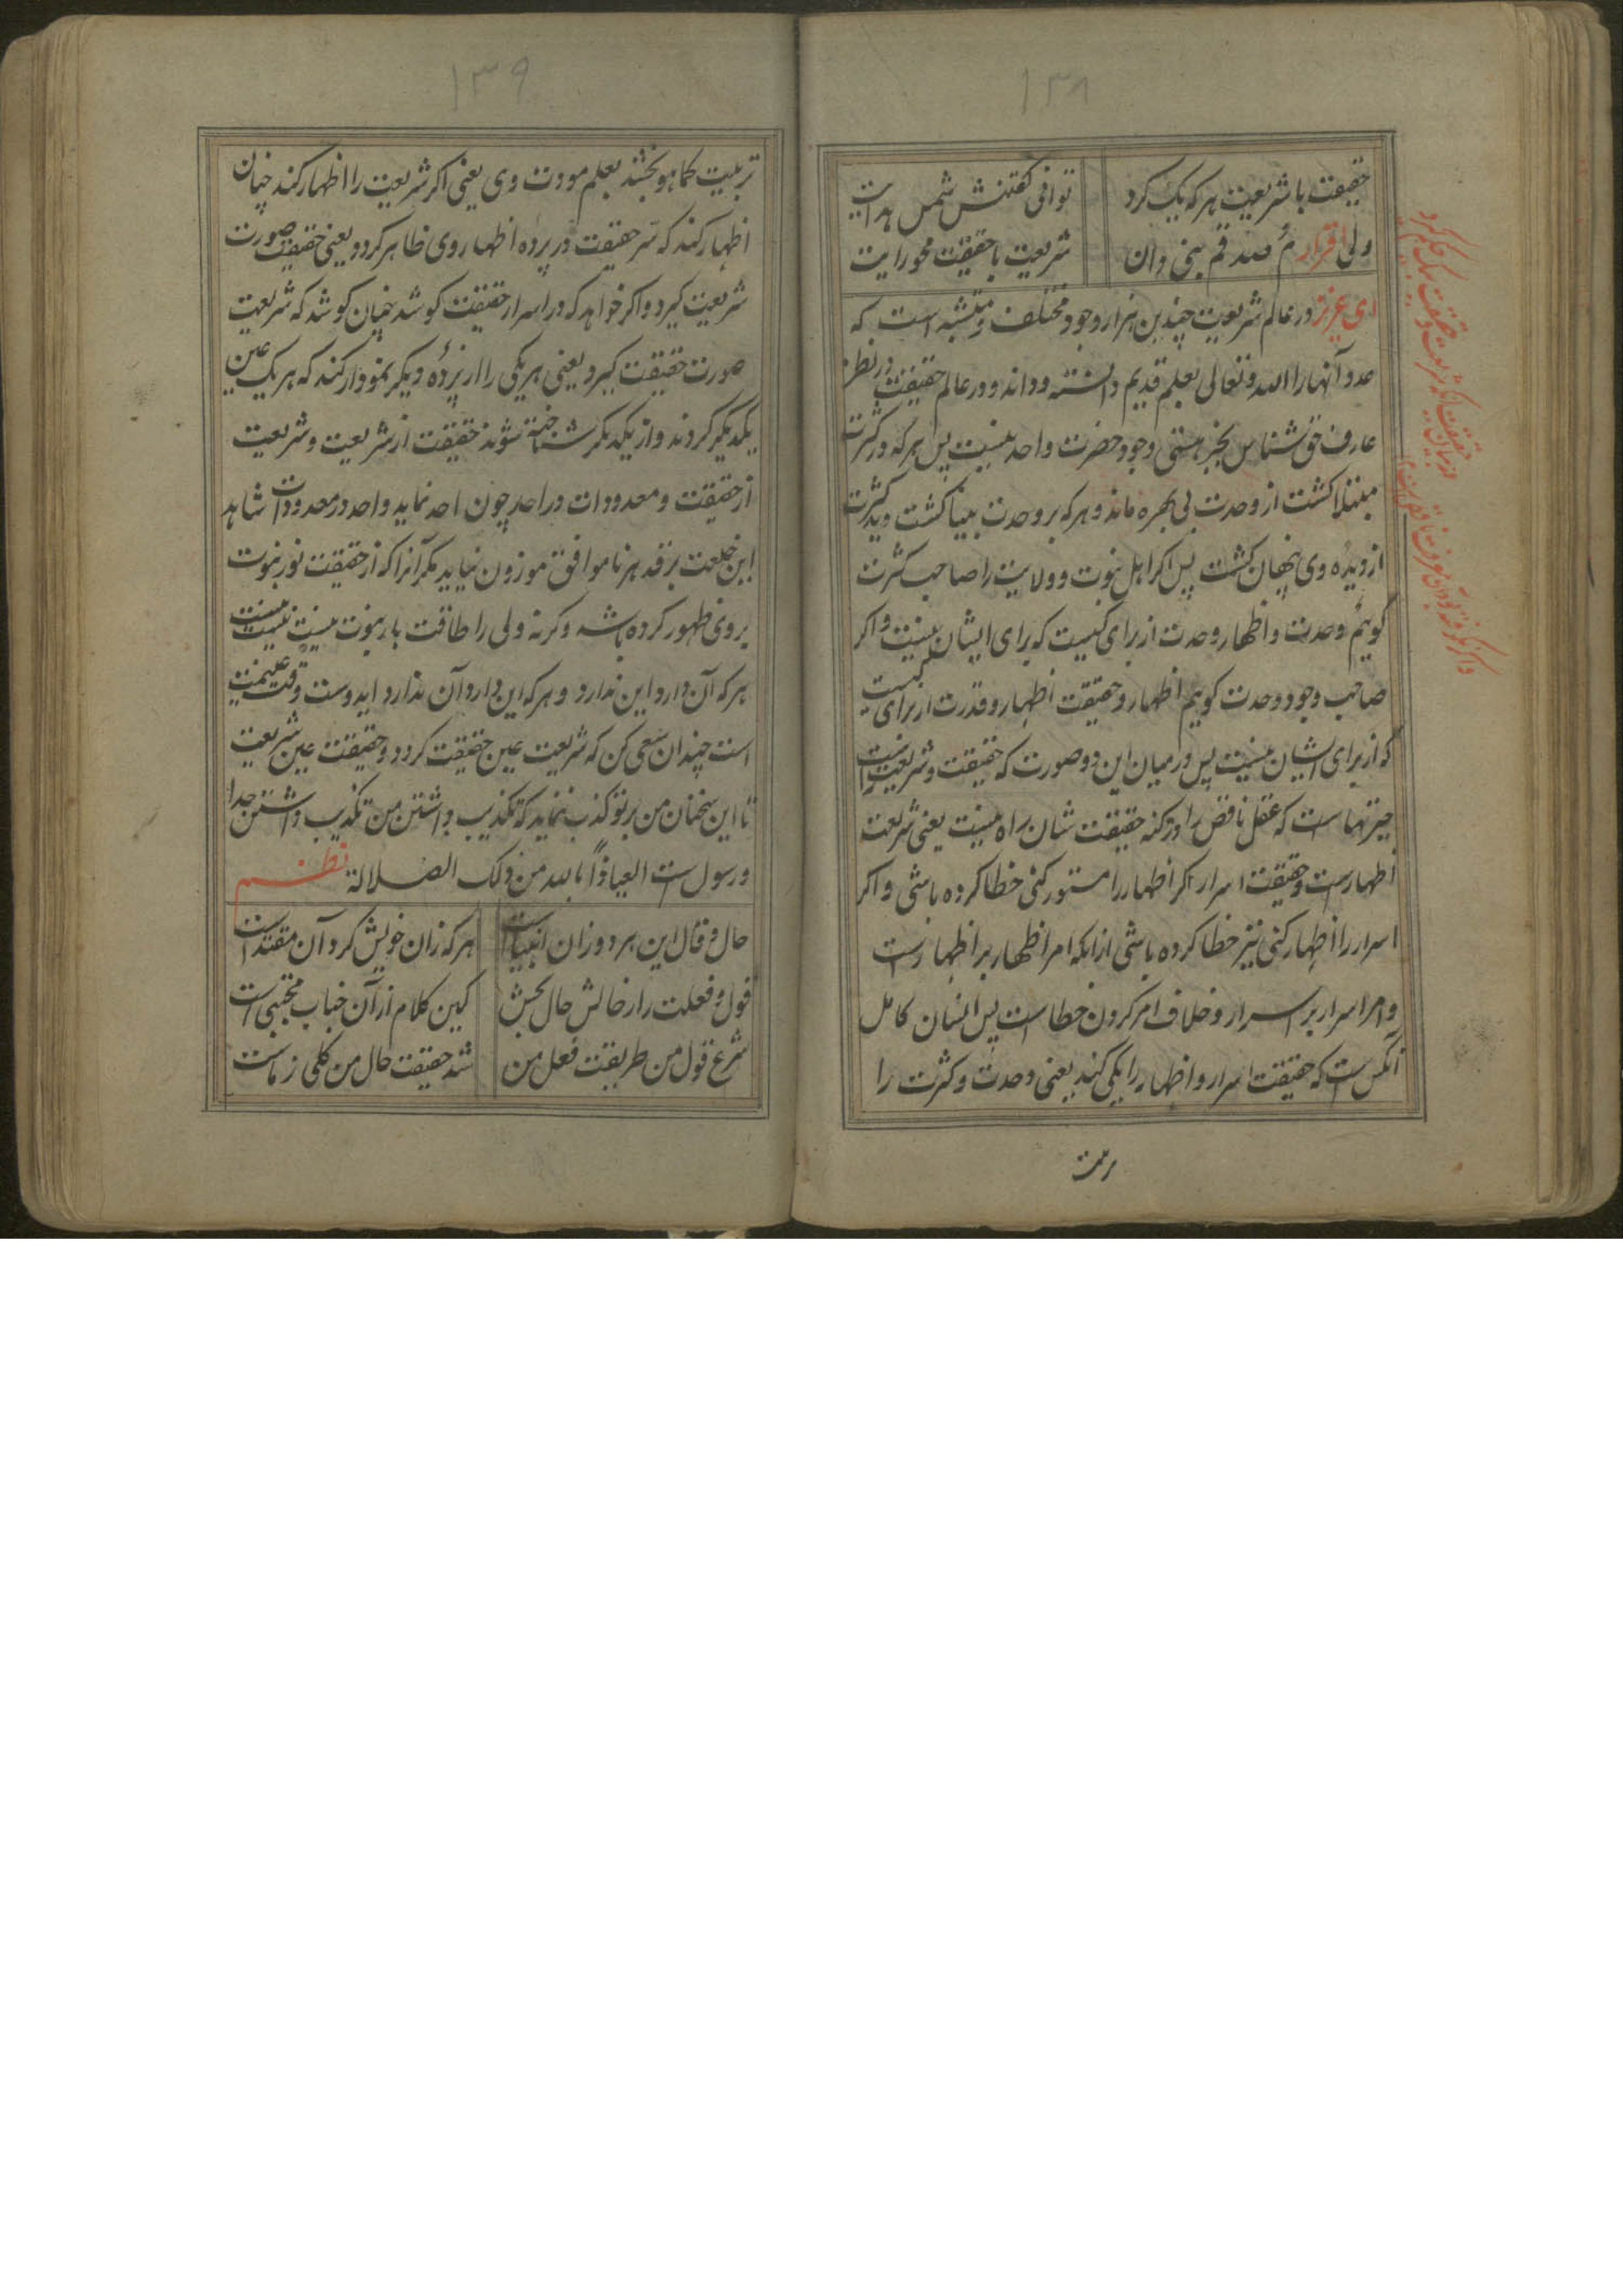 ١٣٨
حقیقت با شریعت هر که یک کرد
توانی گفتنش شمس هدایت
ولی اقرار صدقم بینی و ان
شریعت با حقیقت محو رایت
ای عزیز در عالم شریعت چندین هزار وجود مختلف و متشبه است که
عدد آنها را الله و تعالی بعلم قدیم دانسته و داند و در عالم حقیقت در نظر
عارف حق شناس بجز هستی وجود حضرت واحد نیست پس هر که در کثرت
مبتلا کشت از وحدت بی بهره ماند و هر که بر وحدت بینا کشت دید کثرت
از دیده وی پنهان کشت پس اکر اهل نبوت و ولایت را صاحب کثرت
کوئیم وحدت و اظهار وحدت از برای کیست که برای ایشان نیست و اکر
صاحب وجود وحدت کوئیم اظهار و حقیقت اظهار و قدرت از برای کیست
که از برای ایشان نیست پس در میان این دو صورت که حقیقت و شریعت است
حیرتهاست که عقل ناقص را در کنه حقیقت شان راه نیست یعنی شریعت
اظهارست و حقیقت اسرار اکر اظهار را مستور کنی خطا کرده باشی و اکر
اسرار را اظهار کنی نیز خطا کرده باشی از انکه امر اظهار بر اظهارست
و امر اسرار بر اسرار و خلاف امر کردن خطاست پس انسان کامل
آنکس است که حقیقت اسرار و اظهار را یکی کند یعنی وحدت و کثرت را
١٣٩
تربیت کماهو بخشد بعلم مودت وی یعنی اکر شریعت را اظهار کند چنان
اظهار کند که سر حقیقت در پرده اظهار وی ظاهر کردد یعنی حقیقت صورت
شریعت کیرد و اکر خواهد که در اسرار حقیقت کوشد چنان کوشد که شریعت
صورت حقیقت کیرد یعنی هر یکی را از پرده دیکر نمودار کند که هر یک عین
یکدیکر کردند و از یکدیکر شناخته شوند حقیقت از شریعت و شریعت
از حقیقت و معدودات در احد چون احد نماید و احد در معدودات شاهد
این خلعت بر قد هر ناموافق موزون نیاید مکر آنرا که از حقیقت نور نبوت
بروی ظهور کرده باشد و کرنه ولی را طاقت بار نبوت نیست
هر که آن دارد این ندارد و هر که این دارد آن ندارد ایدوست وقت غنیمت
است چندان سعی کن که شریعت عین حقیقت کردد و حقیقت عین شریعت
تا این سخنان من بر تو کذب ننماید که تکذیب داشتن من تکذیب داشتن خدا
و رسول است العیاذا بالله من ذلک الضلالة نظم
حال و قال این هر دو زان انبیاست
هر که زان خویش کرد آن مقتداست
قول و فعلت را ز حالش حال بخش
کین کلام از آن جناب مجتبی است
شرع قول من طریقت فعل من
شد حقیقت حال من کلی ز ماست